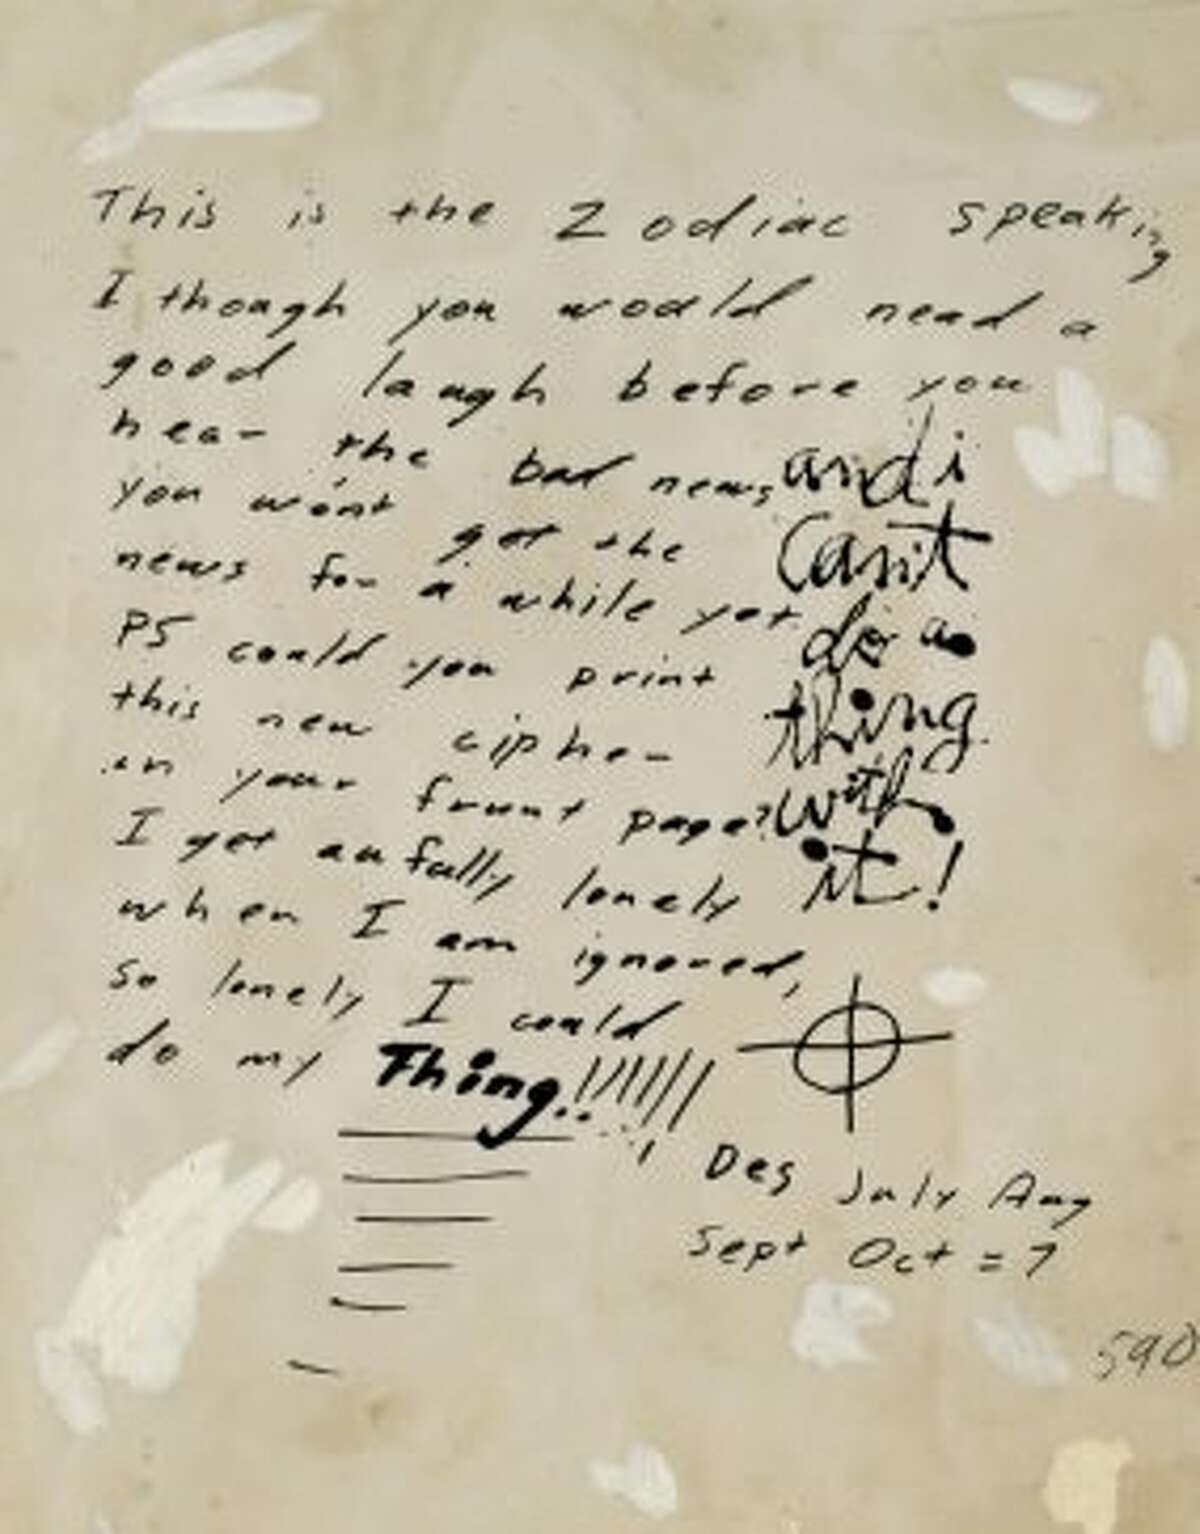 This is the Zodiac speaking
I though you would nead a
good laugh before you
hear the bad news
you won't get the
news for a while yet
PS could you print
this new cipher
in your frunt page?
I get aufully lonely
when I am ignored,
so lonely I could
do my Thing!!!!!!
and i
can't
do a
thing
with
it!
Des July Aug
Sept Oct = 7
590